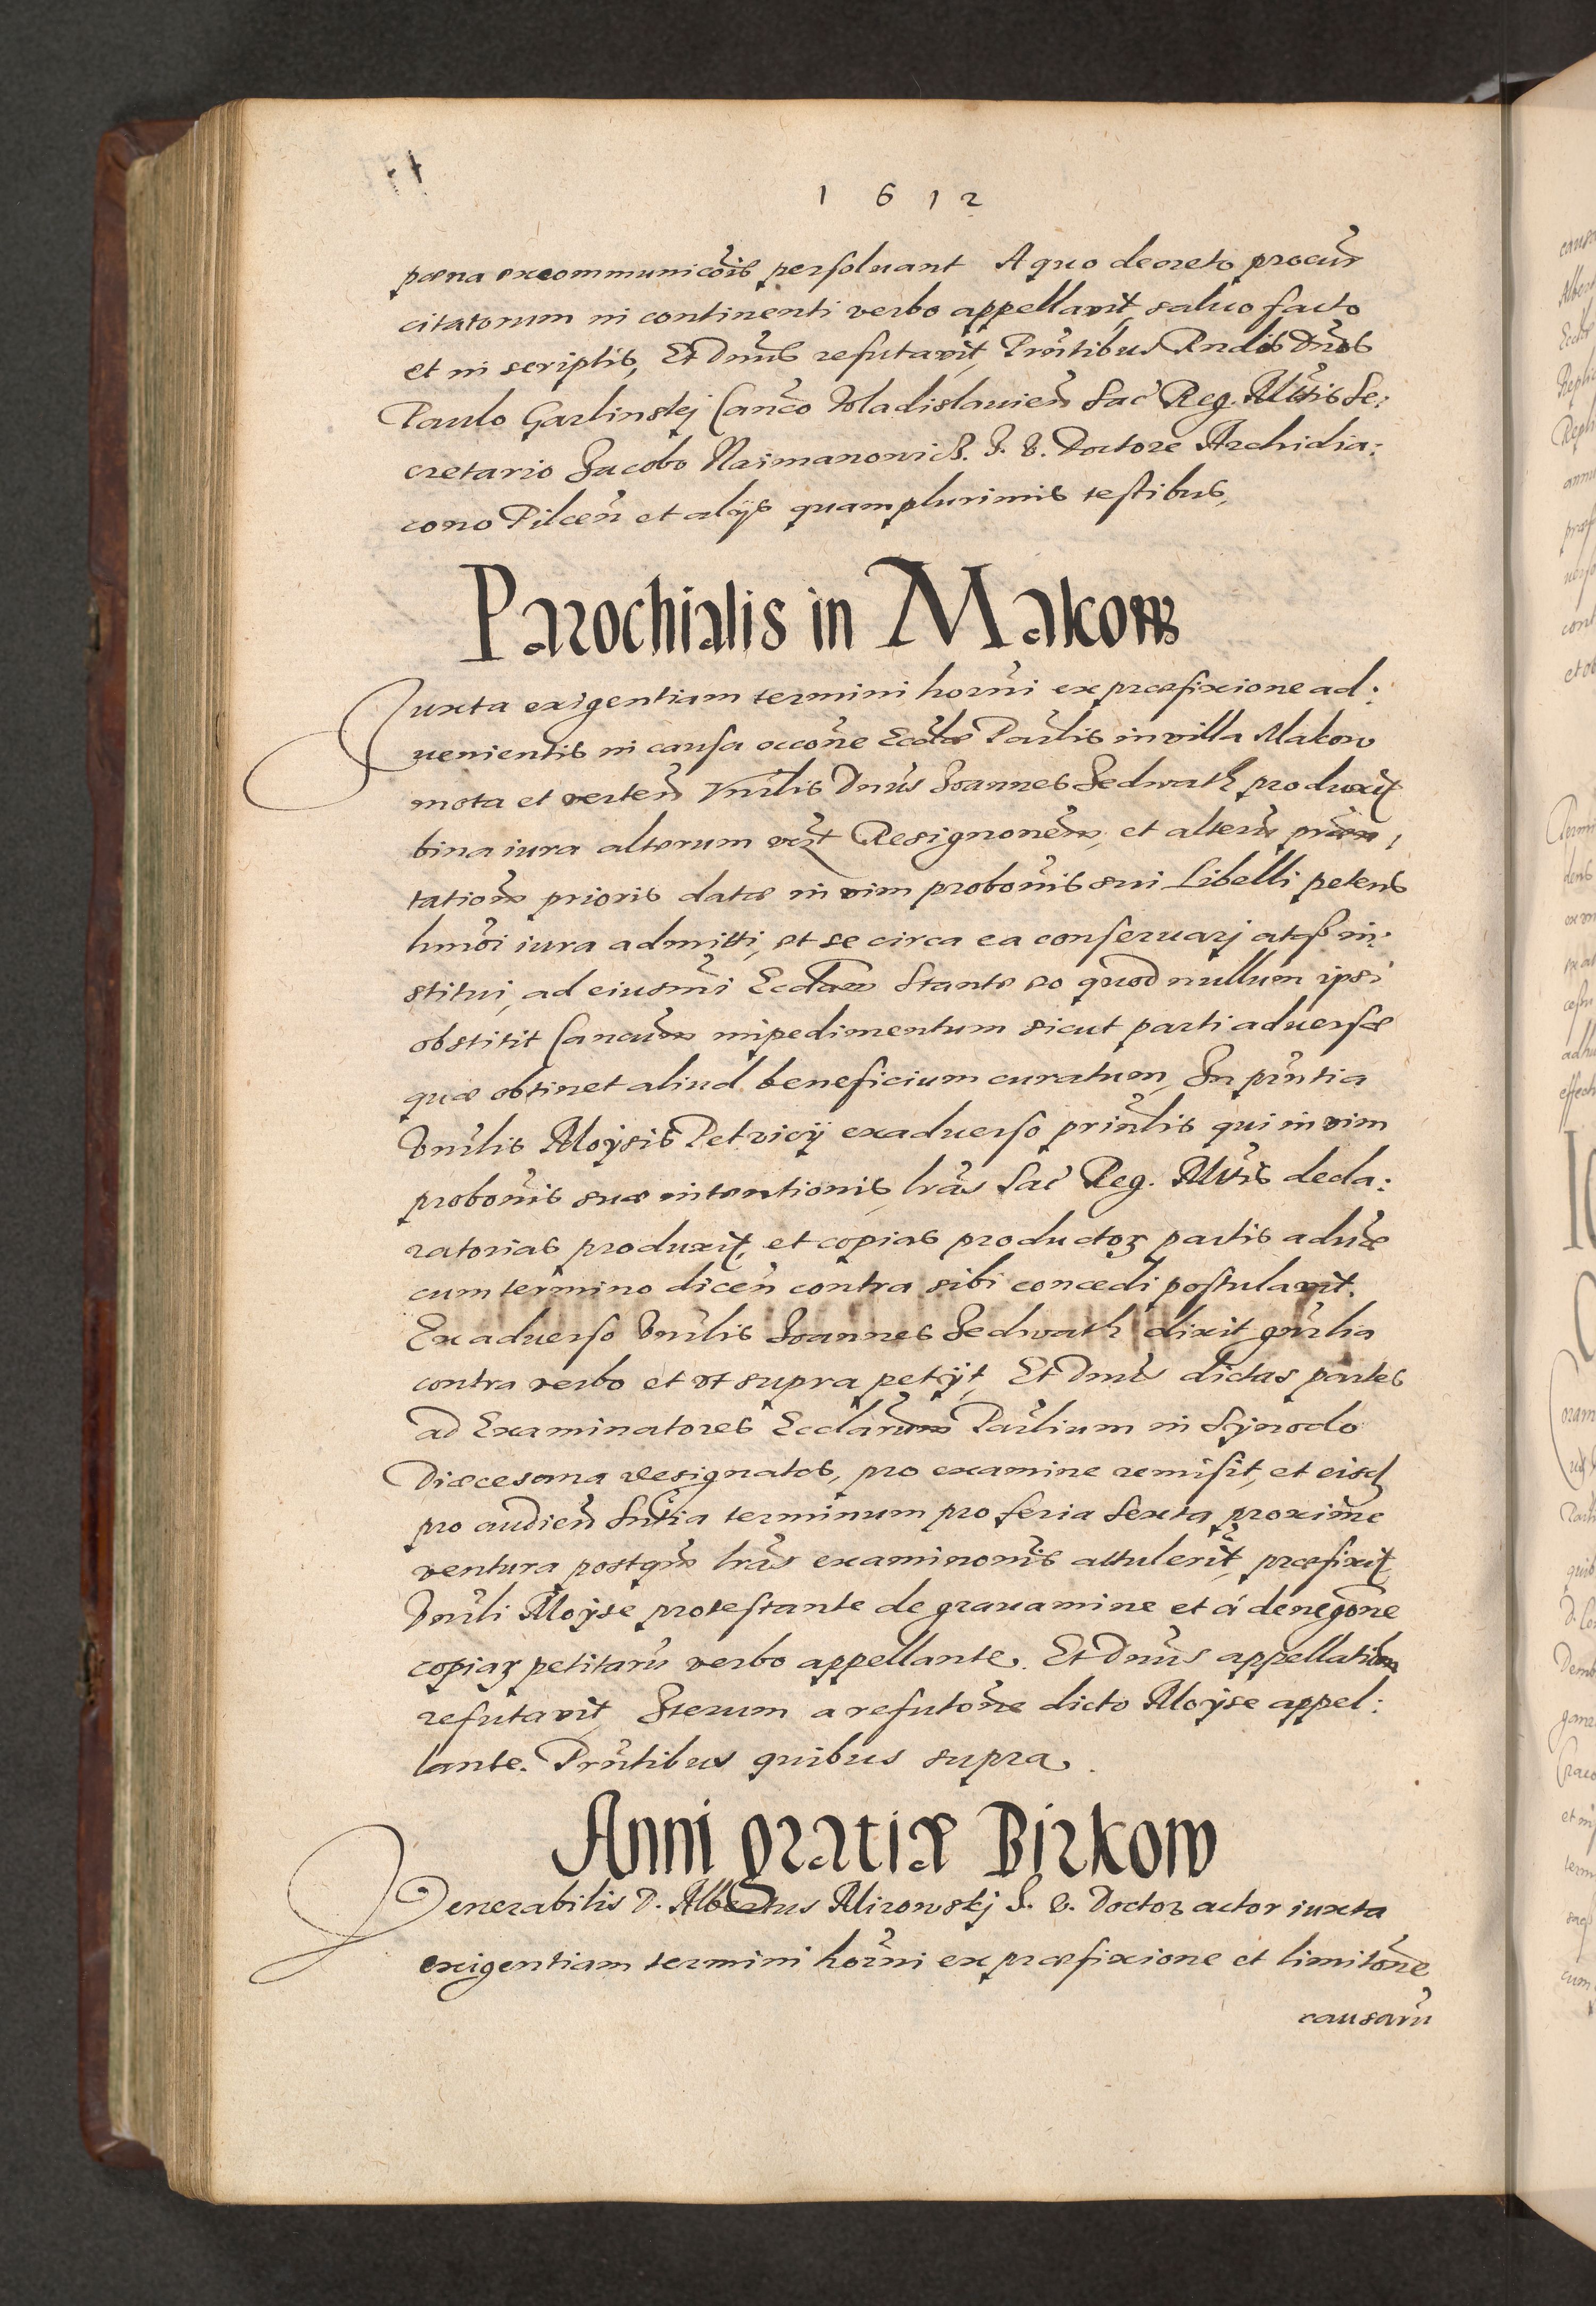 1612
pœna excommunicõis persoluant A quo decreto procur̃
citatorum in continenti verbo appellavit, saluo facto
et in scriptis, Et Dnũs refutavit, Prñtibus Rndis Dnis
Paulo Garlinskj Canco Wladislauien̄ Sac̃ Reg. Mtis Se:
cretario Jacobo Naimanowic J. V. Doctore Archidia:
cono Pilcen̄ et alijs quamplurimis testibus,
Parochialis in Makow
Juxta exigentiam termini horñi ex præfixione ad:
uenientis in causa occõne Ecclæ Parlis in villa Makow
mota et verten̄ Vnrlis Dnũs Joannes Jedwath produxit
bina iura alterum vrt Resignonem, et alterũ præsen:
tatione prioris datæ in vim probonis sui Libelli petens
hmõi iura admitti, et se circa ea conseruarj atq in:
stitui, ad eiusmi Ecclam Stante eo quod nullum ipsi
obstitit Cancum impedimentum sicut parti aduersæ
quæ obtinet aliud beneficium curatum, In prñtia
Vnrlis Aloysis Petricij exaduerso prinlis qui in vim
probonis suæ intentionis, lras Sac̃ Reg. Mtis decla:
ratorias produxit, et copias productoꝝ partis aduæ
cum termino dicen̄ contra sibi concedi postulavit.
Ex aduerso Vnrlis Joannes Jedwath dixit gnrlia
contra verbo et vt supra petijt, Et Dnũs dictas partes
ad Examinatores Ecclarum Parlium in Synodo
Diæcesana designatos, pro examine remisit, et eisd
pro audien̄ Sntia terminum pro feria Sexta proxime
ventura postqm̃ lras examinonis attulerit, præfixit
Vnrli Aloyse protestante de grauamine et á denegõne
copiaꝝ petitarũ verbo appellante. Et Dnũs appellationem
refutavit, Iterum a refutõne dicto Aloyse appel:
lante. Prñtibus quibus supra.
Anni gratiæ Birkow
Venerabilis D. Albertus Mirowskj J. V. Doctor actor iuxta
exigentiam termini horñi ex præfixione et limitõne
causarũ